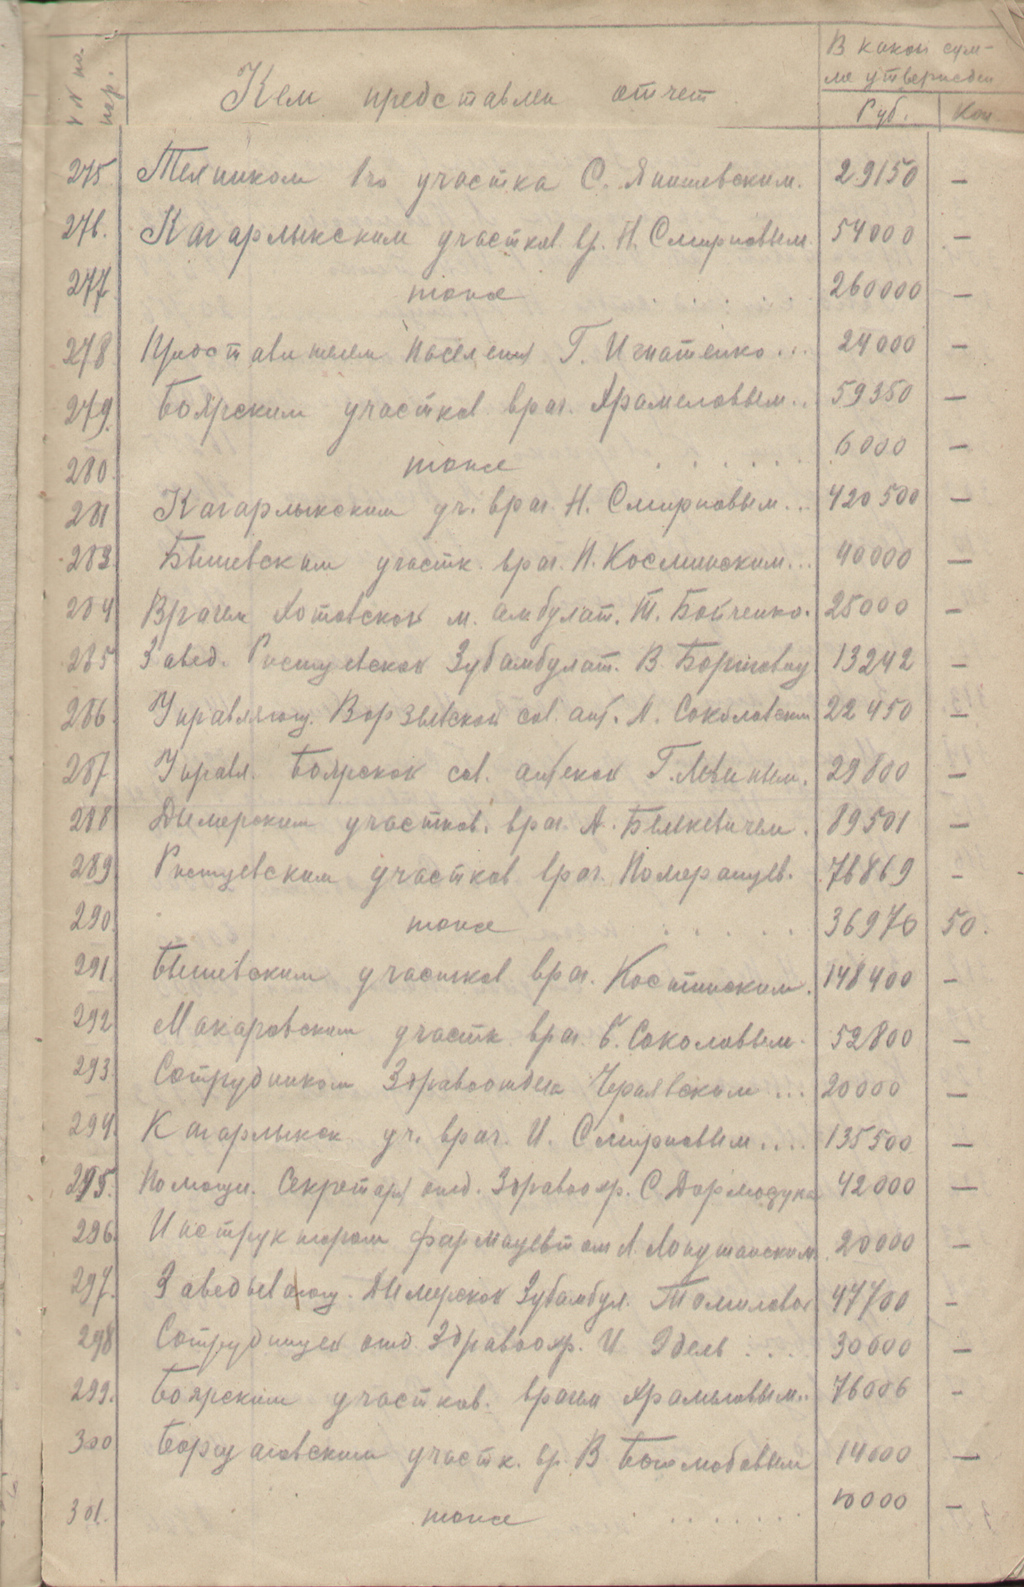 №№ по пор.
Кем представлен отчет
В какой сум-
ме утвержден
Руб. Коп
275 Техником 1го участка С. Янишевским. 29150 —
276. Кагарлыкским участков. вр. Н. Смирновым. 54000 —
277 тоже ..... 260000 —
278 Представителем Населения Г. Игнатенко... 24000 —
279. Боярским участков врач. Храмеловым.. 59350 —
280. тоже ..... 6000 —
281 Кагарлыкским уч. врач. Н. Смирновым... 420500 —
283 Бышевским участк. врач. Н. Косминским... 40000 —
284 Врачем Хотовской м. амбулат. Т. Бойченко. 25000 —
285 Завед. Зубамбулат. В. 13242 —
286. Управляющ. Ворзельской сов. апт. Л. Соколовским 22450 —
287. Управл. Боярской сов. аптекой Г. 29800 —
288 Дымерским участков. врач. А. Белкевичем. 89501 —
289 участков врач. Померанцев. 76869 -
290. тоже ..... 36976 50.
291. Бышевским участков врач. Костинским. 148400 —
292 Макаровским участк врач. Б. Соколовым. 52800 —
293. Сотрудником Здравоотдела Чернявским ... 20000 —
294. Кагарлыкск уч. врач. И. Смирновым.... 135500 —
295. Помощн. Секретаря отд. Здравоохр. С. 42000 —
296. Инструктором фармацевтом Л. 20000 —
297. Заведывающ. Дымерской Зубамбул. Томиловой 47700 -
298 Сотрудницей отд. Здравоохр. И Эдель .... 30000 —
299. Боярским участков. врачем Храмеловым.. 76006 -
300 Борщаговским участк. вр. В Боголюбовым 14000 —
301. тоже ....... 10000 —